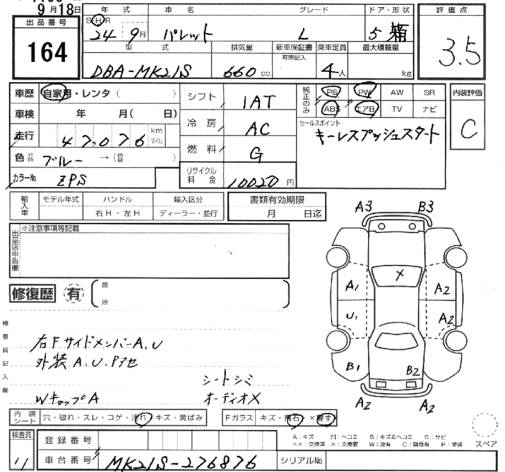 9月18日
出品番号 164
年式 車名 グレード ドア・形状
24年9月 パレット L 5 箱
型式 排気量 新車保証書 有無記入 乗車定員 最大積載量
DBA-MK21S 660cc 4人 kg
評価点 3.5
車歴 自家用・レンタ( )
車検 年 月( 日)
走行 47,076 km マイル
色 ブルー→( )
カラーNo ZPS
シフト 1AT
冷房 AC
燃料 G
リサイクル料金 10020円
純正のみ PS PW AW SR
ABS エアB TV ナビ
セールスポイント
キーレスプッシュスタート
内装評価 C
輸入車 モデル年式 ハンドル 輸入区分
右H・左H ディーラー・並行
書類有効期限
月 日迄
出品店申告欄 ※注意事項等記載
修復歴 有 箇所
検査員記入欄
右FサイドメンバーA.U
外装A.U.P7セ
シートシミ
WナップA オーディオX
A3 B3
X
A1 A2
U1 A2
B1 B2
A2 A2
内装シート 穴・破れ・スレ・コゲ・汚れ・キズ・黄ばみ
Fガラス キズ・飛石・X・要す
スペア
検査員 11
登録番号
車台番号 MK21S-276876 シリアルNo.